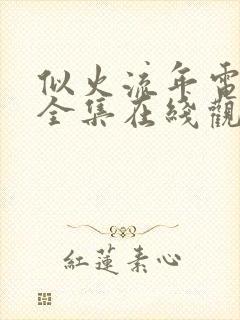 似火流年電
全集在綫觀
紅蓮素心